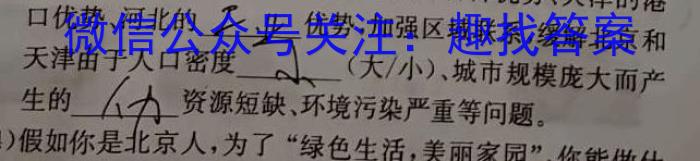 口优势、河北的 优势,加强区域联系,缓解北京和
微信公众号关注：趣找答案
天津由于人口密度____(大/小)、城市规模庞大而产
生的____资源短缺、环境污染严重等问题。
)假如你是北京人,为了“绿色生活,美丽家园”,你能做什